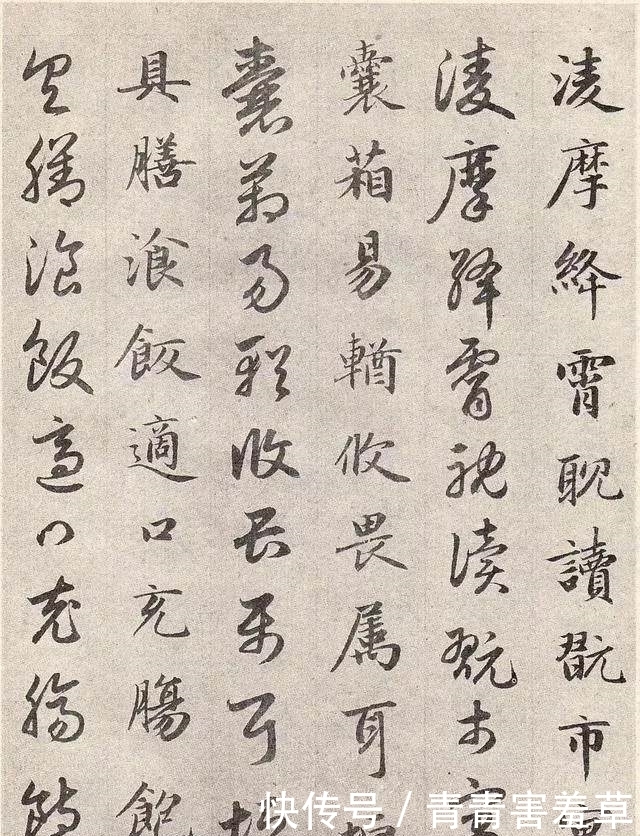 淩摩絳霄耽讀翫市
淩摩絳霄耽讀翫市
囊箱易輶攸畏属耳
囊箱易輶攸畏属耳
具膳湌飯適口充腸飽
具膳湌飯適口充腸飽
快传号 / 青青害羞草